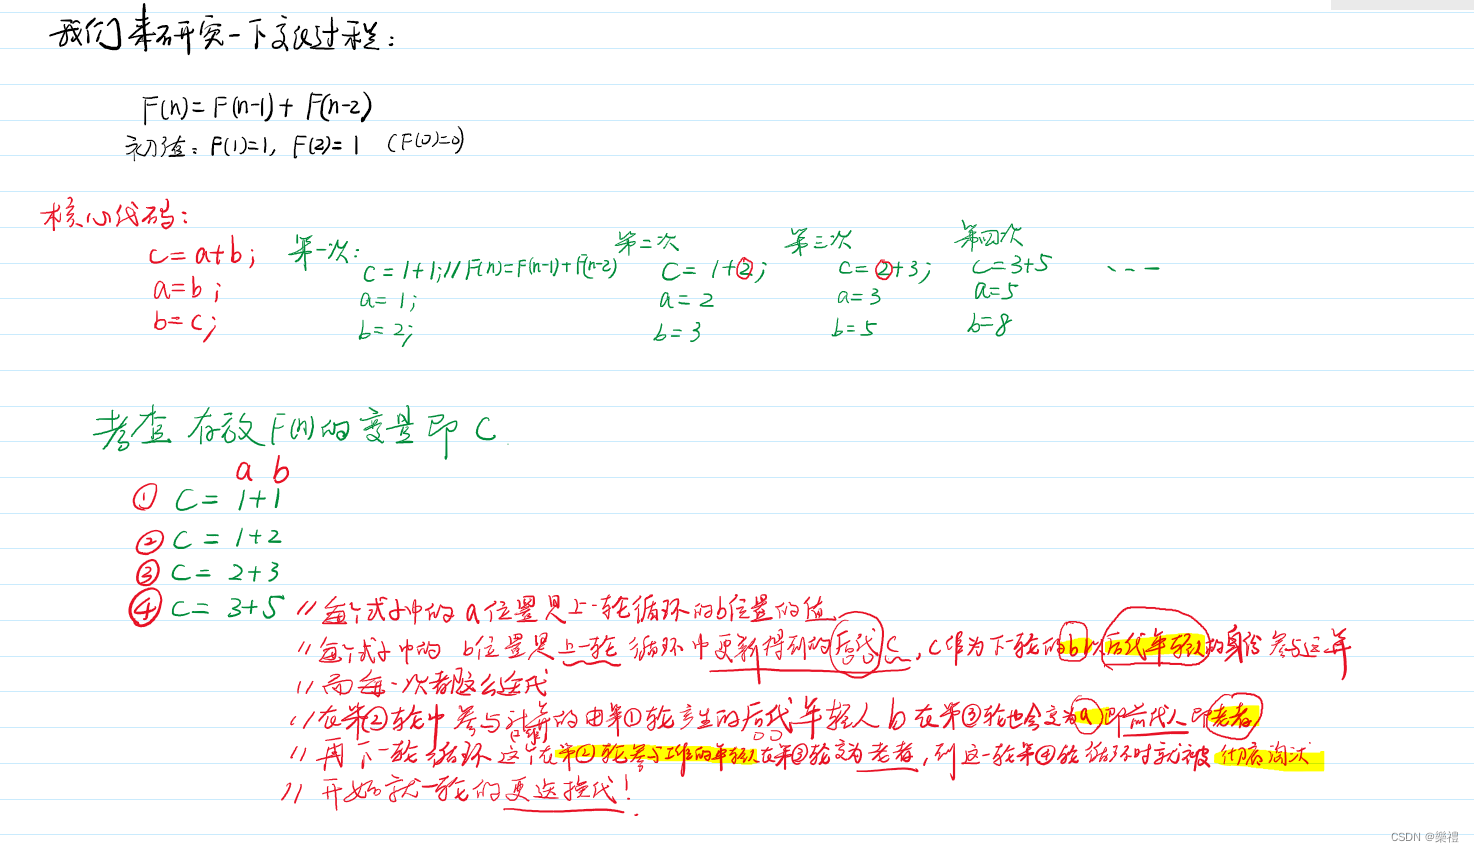 我们来研究一下交汇过程:
F(n)= F(n-1)+ F(n-2)
初值: F(1)=1, F(2)=1 (F(0)=0)
核心代码:
c= a+b;
a=b;
b=c;
第一次:
c=1+1;//F(n)=F(n-1)+F(n-2)
a=1;
b=2;
第二次
c= 1+2;
a=2
b=3
第三次
c=2+3;
a=3
b=5
第四次
c=3+5
a=5
b=8
...
考查 存放F(n)的变量即 C
a b
① C= 1+1
② C= 1+2
③ C= 2+3
④ C= 3+5 //每个式子中的a位置是上一轮循环的b位置的值
//每个式子中的 b位置是上一轮 循环中更新得到的后代C, C作为下一轮的b以后代年轻人的身份 参与这年
//而每一次都这么迭代
//在第②轮中 参与计算的由第①轮产生的后代年轻人b在第③轮也会变为a即前代人即老者
//再下一轮循环 这个在第②轮参与工作的年轻人在第③轮变为老者,到这一轮第④轮循环时就被彻底淘汰
//开始新一轮的更迭换代!
CSDN @樂禮